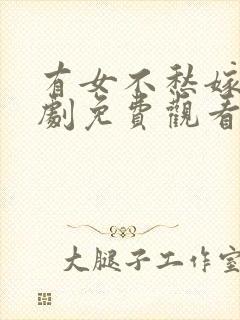 有女不愁嫁
劇免費觀看
大腿子工作室